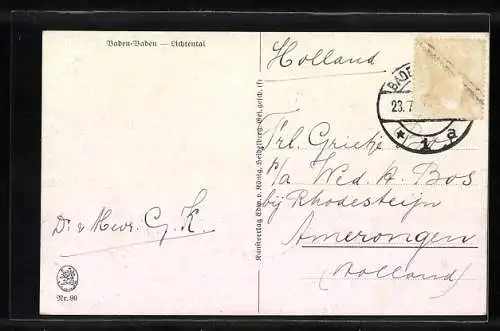 Baden-Baden — Lichtental
Holland
BADE
23.7
* 1 a
Frl. Grietje
p/a Wed. A. Bos
bij Rhodesteijn
Amerongen
(Holland)
Dr. v Meur. G. K.
Nr. 90
Kunstverlag Edm. v. König, Heidelberg-Bei.gesch. (f)